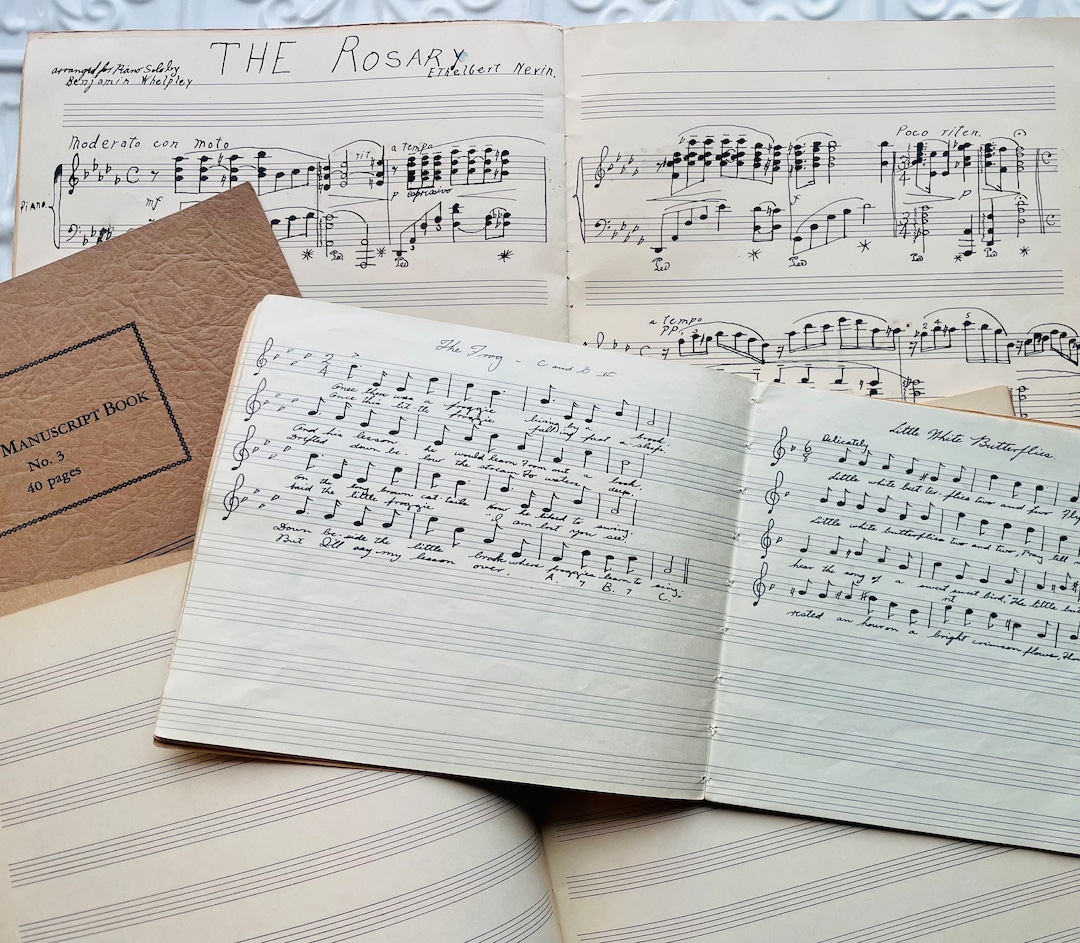 THE ROSARY
arranged for Piano Solo by
Benjamin Whelpley
Ethelbert Nevin.
Moderato con moto
rit.
a tempo
Piano
mf
p espressivo
Ped
Ped
Poco riten.
f
p
Ped
Ped
Ped
a Tempo
PP.
MANUSCRIPT BOOK
No. 3
40 pages
The Frog - C and G
2
4
Once there was a froggie living by a brook.
Once this lit-tle froggie falling fast a sleep.
And his lesson he would learn From out a book.
Drifted down be-low the stream to waters deep.
On the long brown cat tails How he liked to swing
Said the little froggie "I am lost you see.
Down be-side the little brook where froggies learn to sing.
But I'll say my lesson over. A 7 B. 7 C.
Little White Butterflies.
6
8
Delicately
Little white but ter flies two and four
Little white butterflies two and two, Pray tell
hear the song of a sweet sweet bird, The little
rit
rested an hour on a bright crimson flower,